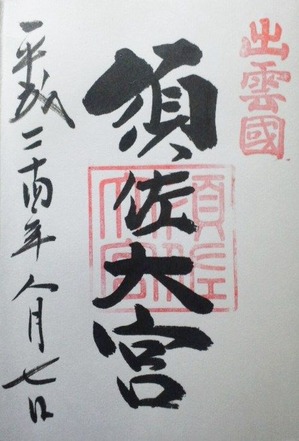 出雲國
須佐大宮
平成二十四年八月七日